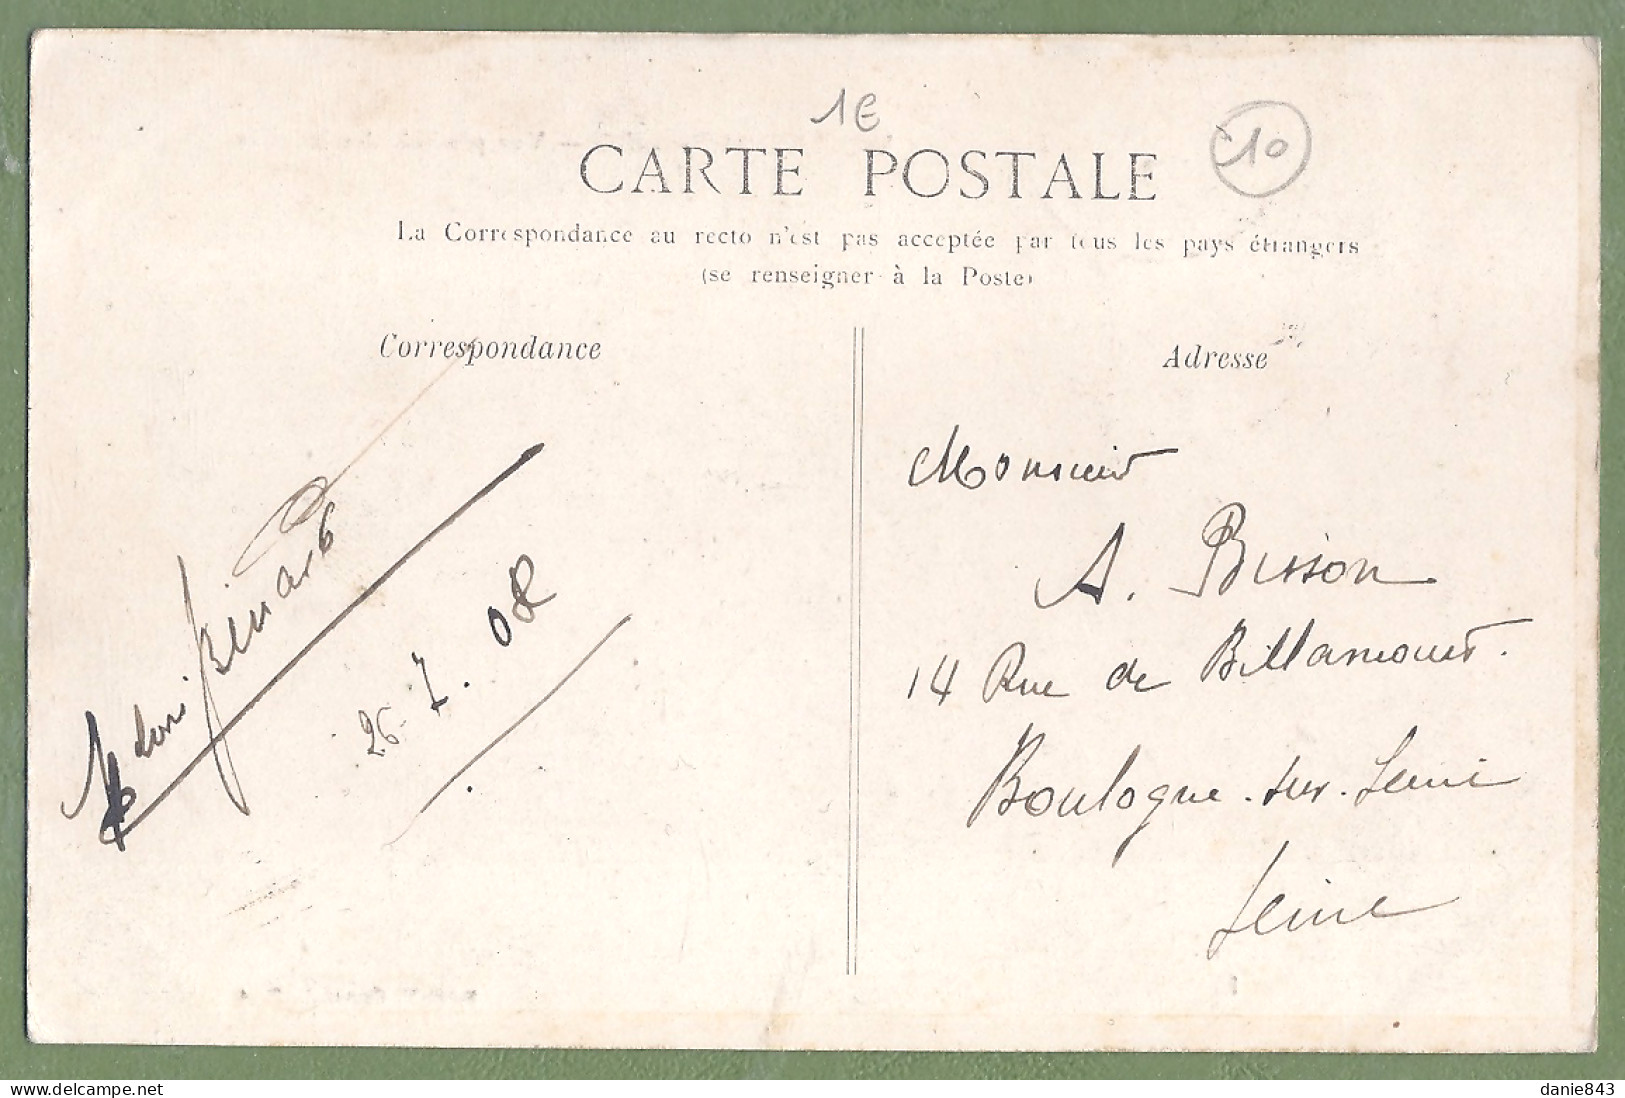 1E
10
CARTE POSTALE
La Correspondance au recto n'est pas acceptée par tous les pays étrangers
(se renseigner à la Poste)
Correspondance
Adresse
Monsieur
A. Bisson
14 Rue de Billancourt.
Boulogne-sur-Seine
Seine
26-7.08
Delcampe.net
danie843